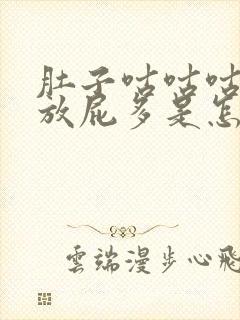 肚子咕咕咕
放屁多是怎
雲端漫步心飛